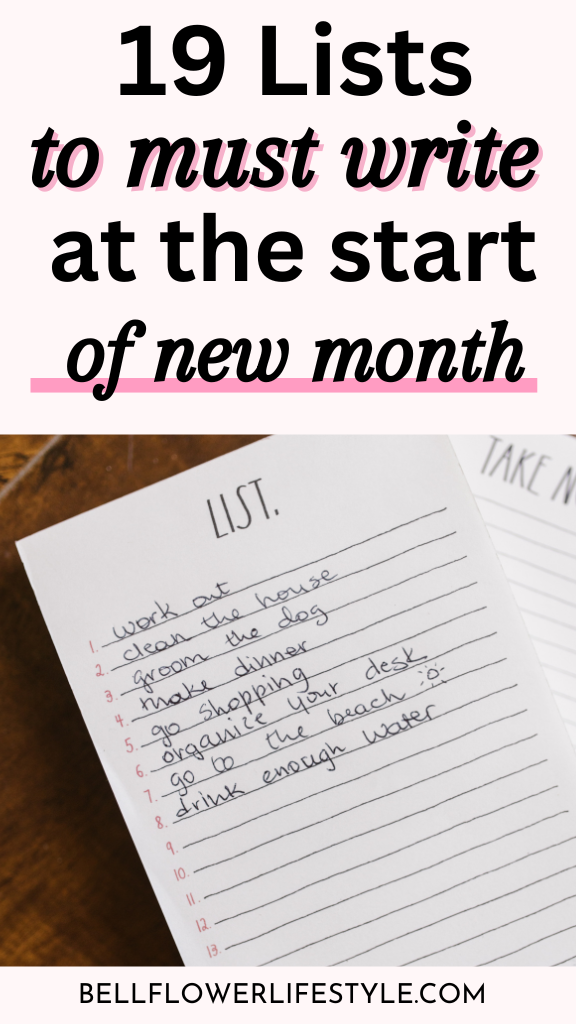 19 Lists
to must write
at the start
of new month
LIST.
TAKE N
1. work out
2. clean the house
3. groom the dog
4. make dinner
5. go shopping
6. organize your desk
7. go to the beach
8. drink enough water
9.
10.
11.
12.
13.
BELLFLOWERLIFESTYLE.COM